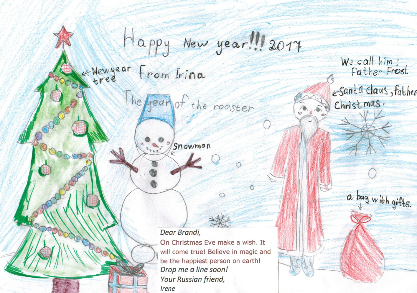 Happy New year!!! 2017
New year
tree
From Irina
The year of the rooster
We call him:
Father Frost
Santa Claus, Father
Christmas
Snowman
a bag with gifts.
Dear Brandi,
On Christmas Eve make a wish. It
will come true! Believe in magic and
be the happiest person on earth!
Drop me a line soon!
Your Russian friend,
Irene